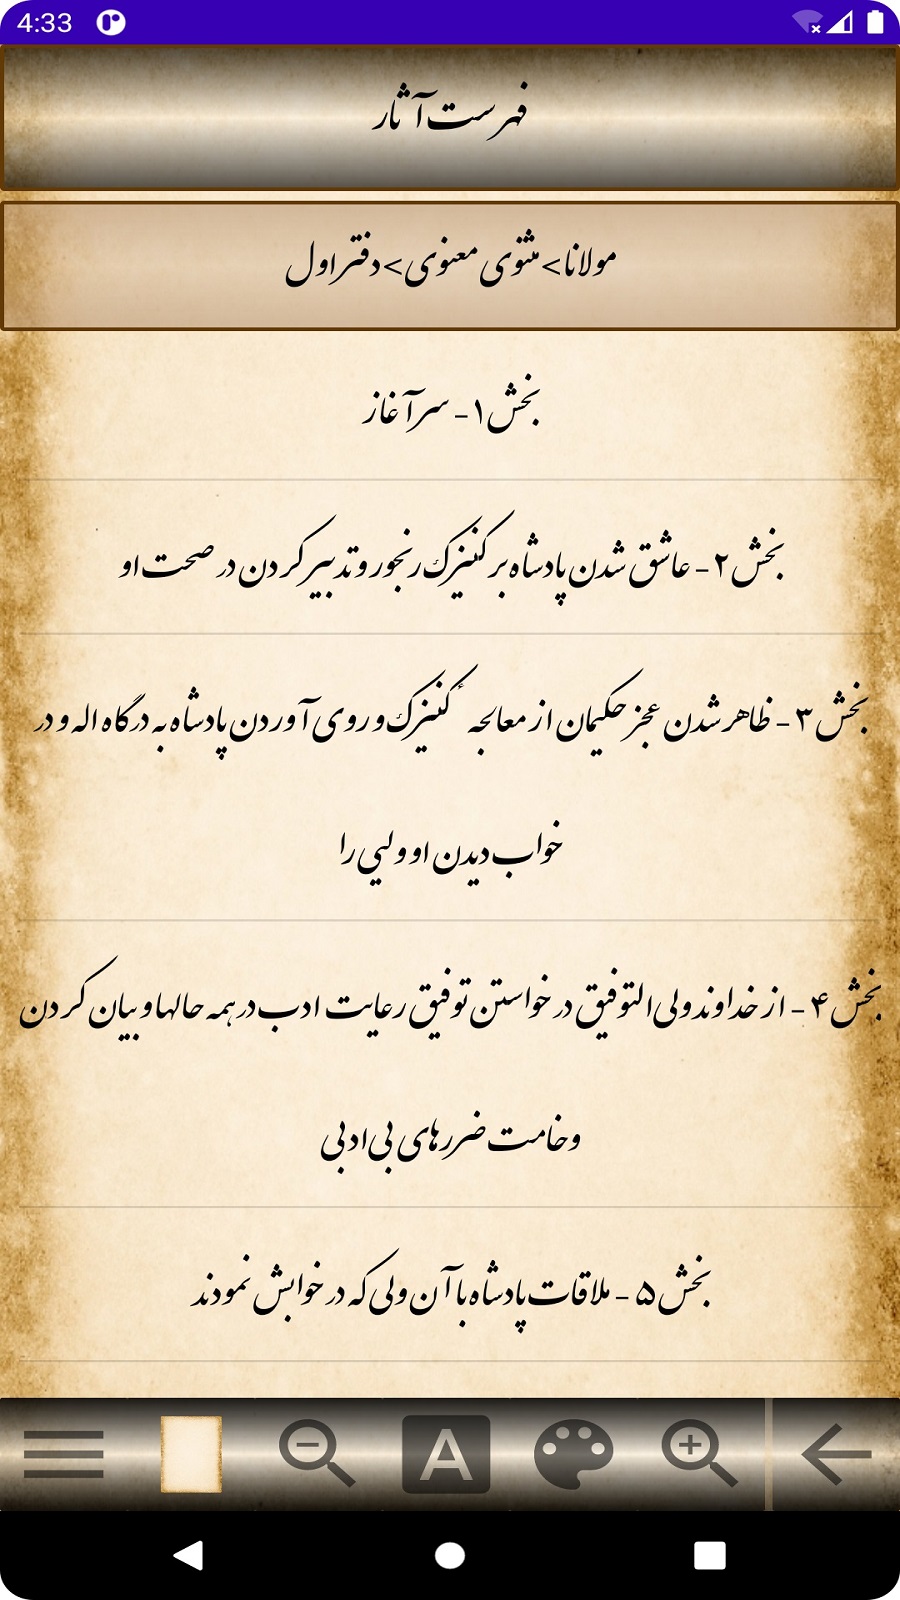 4:33
فهرست آثار
مولانا>مثنوی معنوی>دفتر اول
بخش ۱ - سرآغاز
بخش ۲ - عاشق شدن پادشاه بر کنیزک رنجور و تدبیر کردن در صحت او
بخش ۳ - ظاهر شدن عجز حکیمان از معالجهٔ کنیزک و روی آوردن پادشاه به درگاه اله و در
خواب دیدن او ولیی را
بخش ۴ - از خداوند ولی‌التوفیق در خواستن توفیق رعایت ادب در همه حالها و بیان کردن
وخامت ضررهای بی‌ادبی
بخش ۵ - ملاقات پادشاه با آن ولی که در خوابش نمودند
A